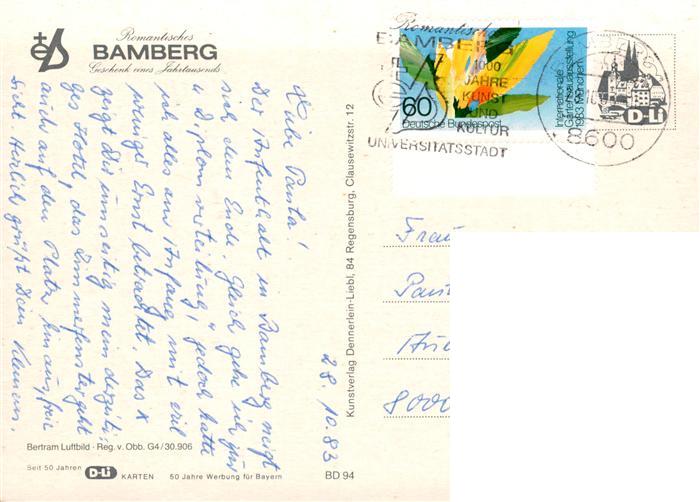 Romantisches
BAMBERG
Geschenk eines Jahrtausends
Liebe Paula!
Der Aufenthalt in Bamberg neigt
sich dem Ende. Gleich gehe ich zur
"Diplomverteilung", jedoch hatte
ich alles am Anfang mit viel
weniger Ernst betrachtet. Das x
zeigt Dir umseitig mein derzeiti-
ges Hotel, das Zimmerfenster geht
auch auf den Platz hinaus, freie
Sicht. Herzlich grüßt Dein Klemens.
28.10.83
Bertram Luftbild · Reg. v. Obb. G4/30.906
Seit 50 Jahren D-Li KARTEN 50 Jahre Werbung für Bayern
BD 94
Kunstverlag Dennerlein-Liebl, 84 Regensburg, Clausewitzstr. 12
Romantisches
BAMBERG
1000
JAHRE
KUNST
UND
KULTUR
UNIVERSITÄTSSTADT
60
Deutsche Bundespost
Internationale
Gartenbauausstellung
1983 München
8600
D-Li
Frau
8000